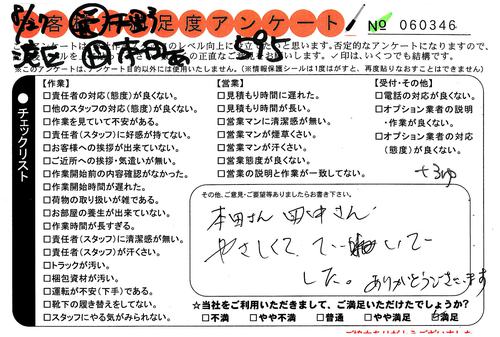 8/27
お客様満足度アンケート
№ 060346
595
※このアンケートは、アンケート目的以外には使用いたしません。(※情報保護シールは1度はがすと、再度貼りなおすことはできません)
チェックリスト
【作業】
□責任者の対応(態度)が良くない。
□他のスタッフの対応(態度)が良くない。
□作業を見ていて不安がある。
□責任者(スタッフ)に好感が持てない。
□お客様への挨拶が出来ていない。
□ご近所への挨拶・気遣いが無い。
□作業開始前の内容確認がなかった。
□作業開始時間が遅れた。
□荷物の取り扱いが雑である。
□お部屋の養生が出来ていない。
□作業時間が長すぎる。
□責任者(スタッフ)に清潔感が無い。
□責任者(スタッフ)が汗くさい。
□トラックが汚い。
□梱包資材が汚い。
□運転が不安(下手)である。
□靴下の履き替えをしてない。
□スタッフにやる気がみられない。
【営業】
□見積もり時間に遅れた。
□見積もり時間が長い。
□営業マンに清潔感が無い。
□営業マンが煙草くさい。
□営業マンが汗くさい。
□営業態度が良くない。
□営業の説明と作業が一致してない。
【受付・その他】
□電話の対応が良くない。
□オプション業者の説明
・作業が良くない。
□オプション業者の対応
(態度)が良くない。
その他、ご意見・ご要望等ありましたらお書き下さい。
本田さん 田中さん
やさしくて
した。ありがとうございます
☆当社をご利用いただきまして、ご満足いただけたでしょうか?
□不満 □やや不満 □普通 □やや満足 □満足